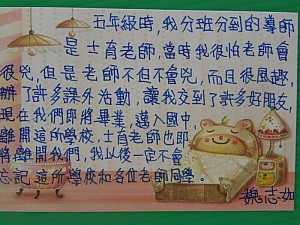 五年級時,我分班分到的導師
是士育老師,當時我很怕老師會
很兇,但是老師不但不會兇,而且很風趣,
辦了許多課外活動,讓我交到了許多好朋友,
現在我們即將畢業,邁入國中,
離開這所學校,士育老師也即
將離開我們,我以後一定不會
忘記這所學校和各位老師同學。
魏志如